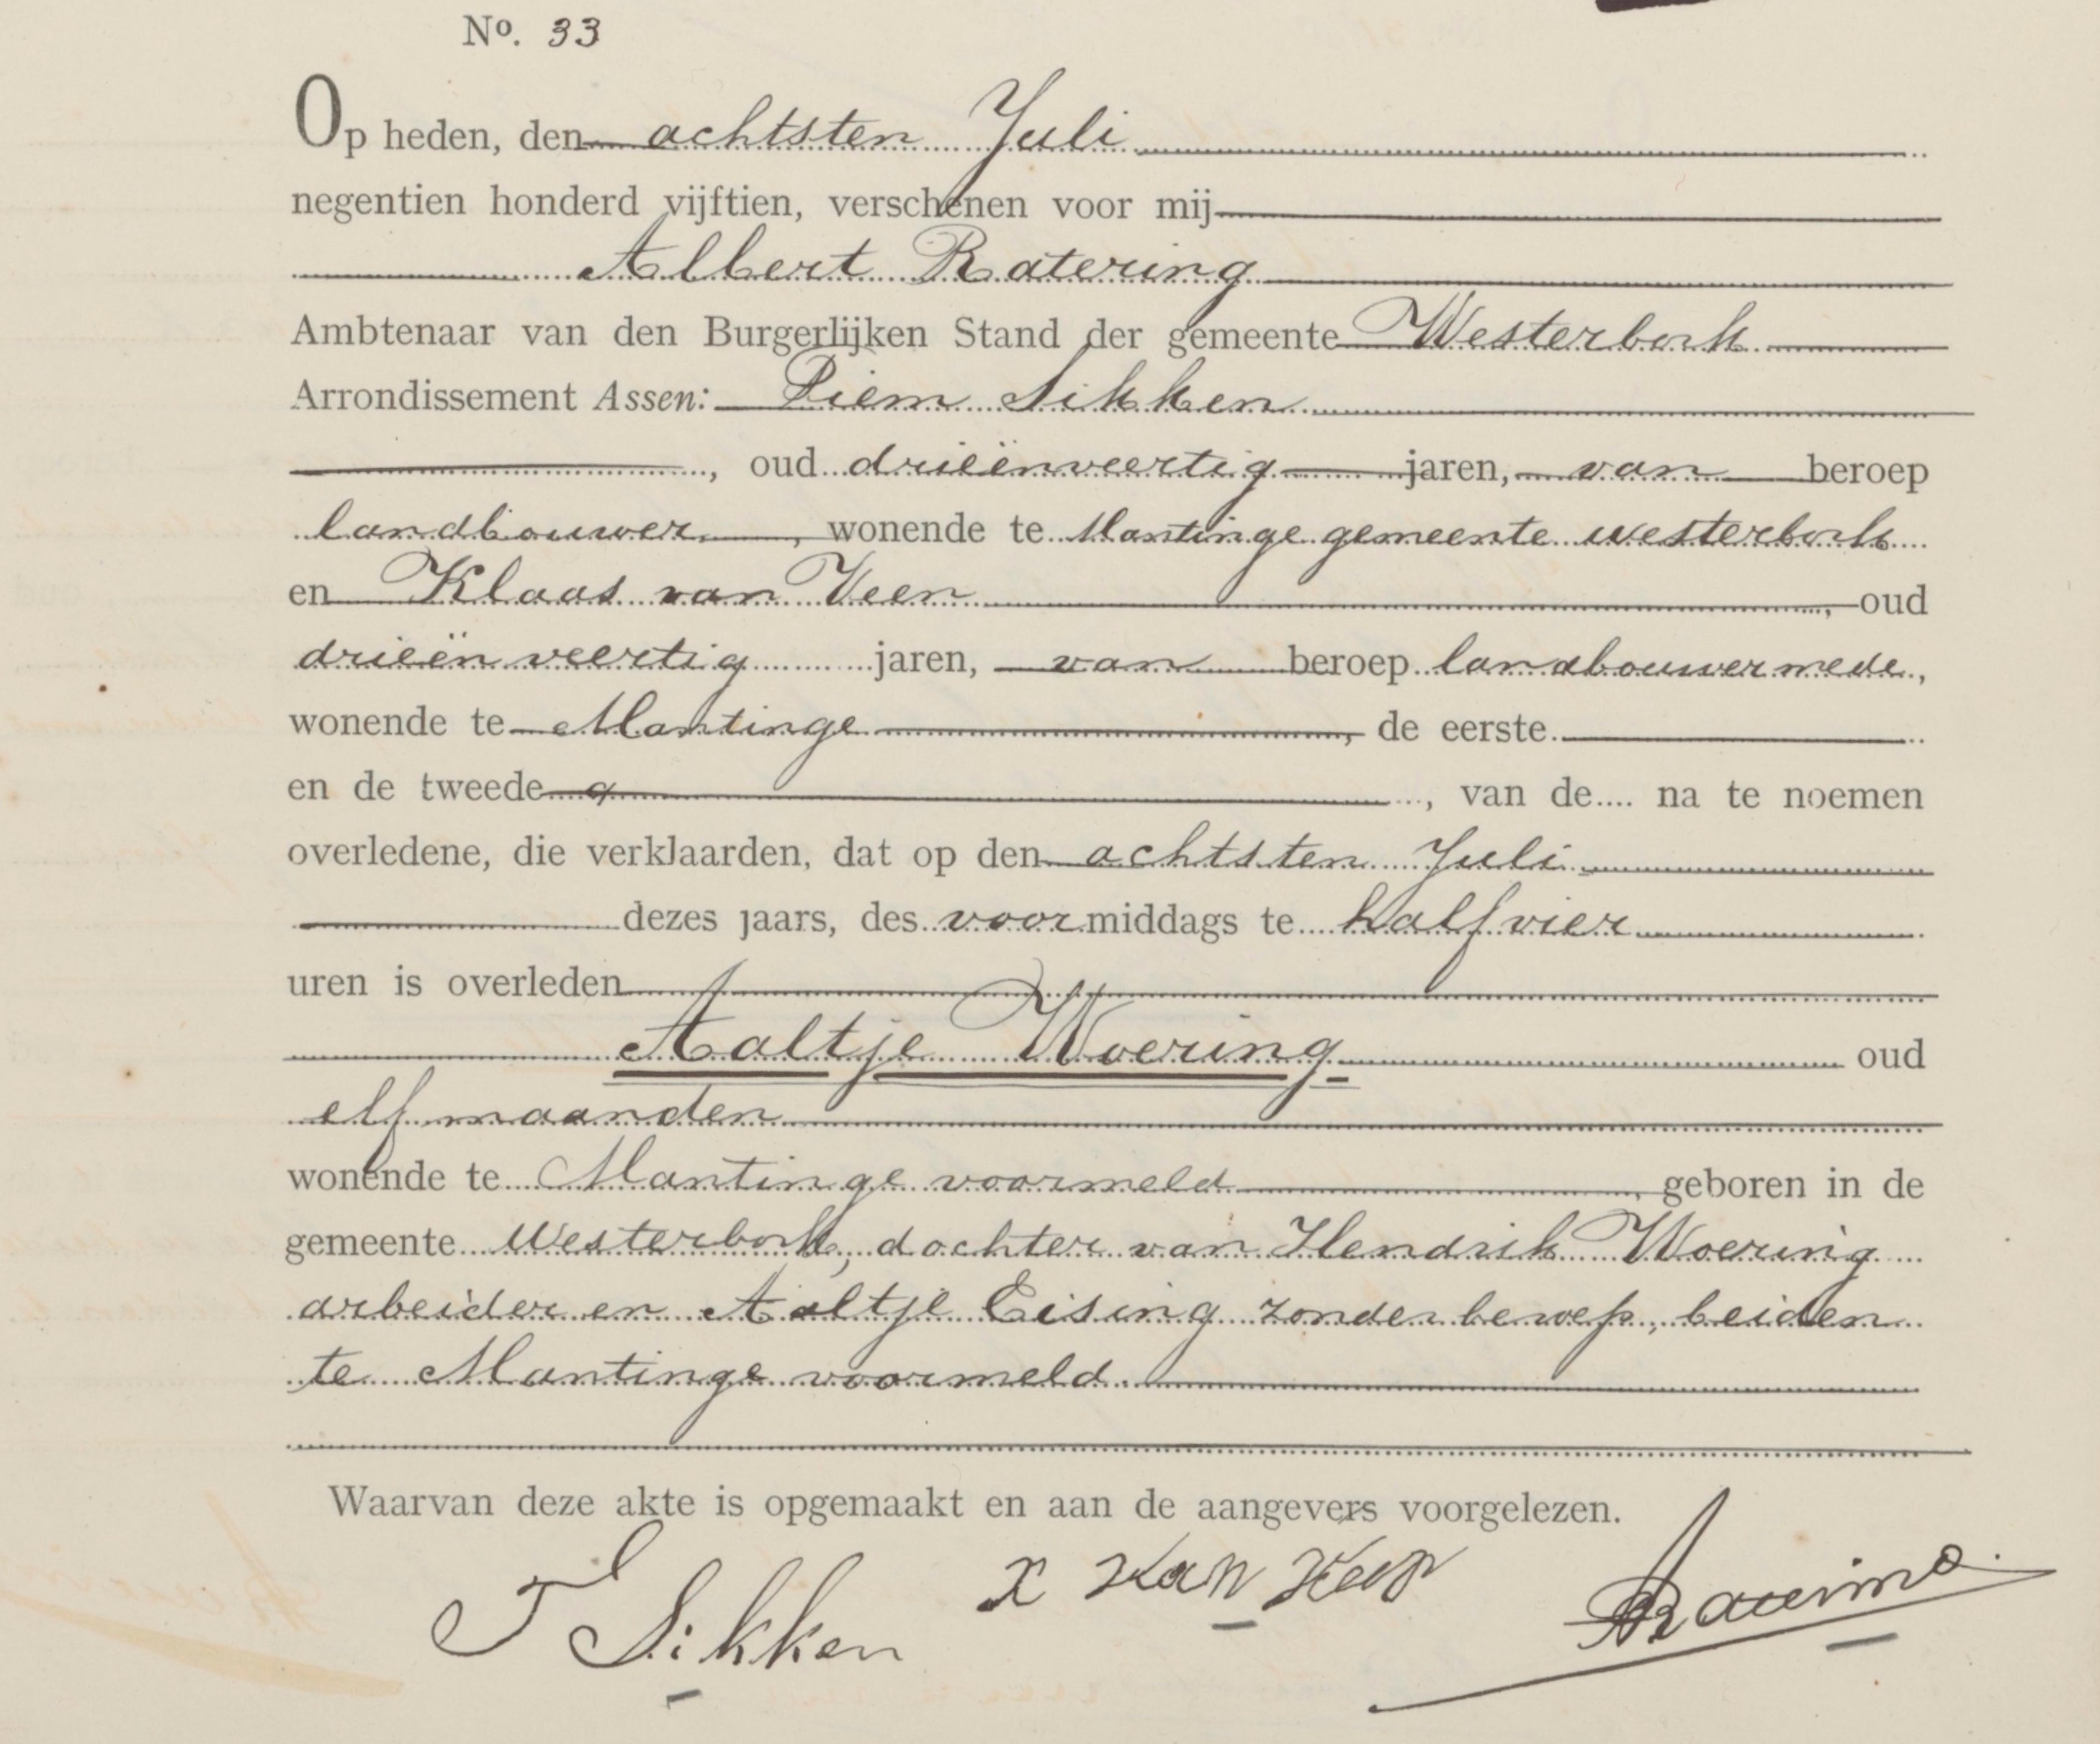 No. 33
Op heden, den achtsten Juli
negentien honderd vijftien, verschenen voor mij
Albert Ratering
Ambtenaar van den Burgerlijken Stand der gemeente Westerbork
Arrondissement Assen: Tiem Sikken
, oud drieënveertig jaren, van beroep
landbouwer, wonende te Mantinge gemeente westerbork
en Klaas van Veen, oud
drieënveertig jaren, van beroep landbouwer mede,
wonende te Mantinge, de eerste
en de tweede, van de na te noemen
overledene, die verklaarden, dat op den achtsten Juli
dezes jaars, des voormiddags te half vier
uren is overleden
Aaltje Woering oud
elf maanden
wonende te Mantinge voormeld, geboren in de
gemeente Westerbork, dochter van Hendrik Woering
arbeider en Aaltje Eising zonder beroep, beiden
te Mantinge voormeld.
Waarvan deze akte is opgemaakt en aan de aangevers voorgelezen.
T Sikken K van Veen